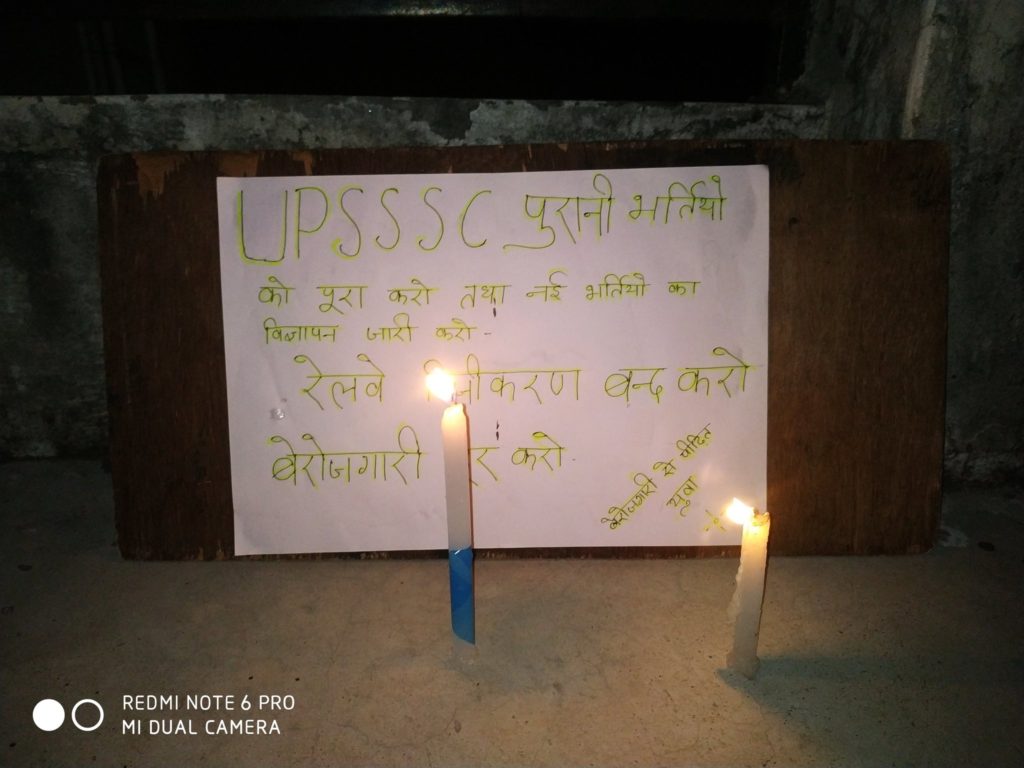 UPSSSC पुरानी भर्तियो
को पूरा करो तथा नई भर्तियो का
विज्ञापन जारी करो -
रेलवे करण बन्द करो
बेरोजगारी करो
बेरोजगारी से पीडित
युवा
REDMI NOTE 6 PRO
MI DUAL CAMERA